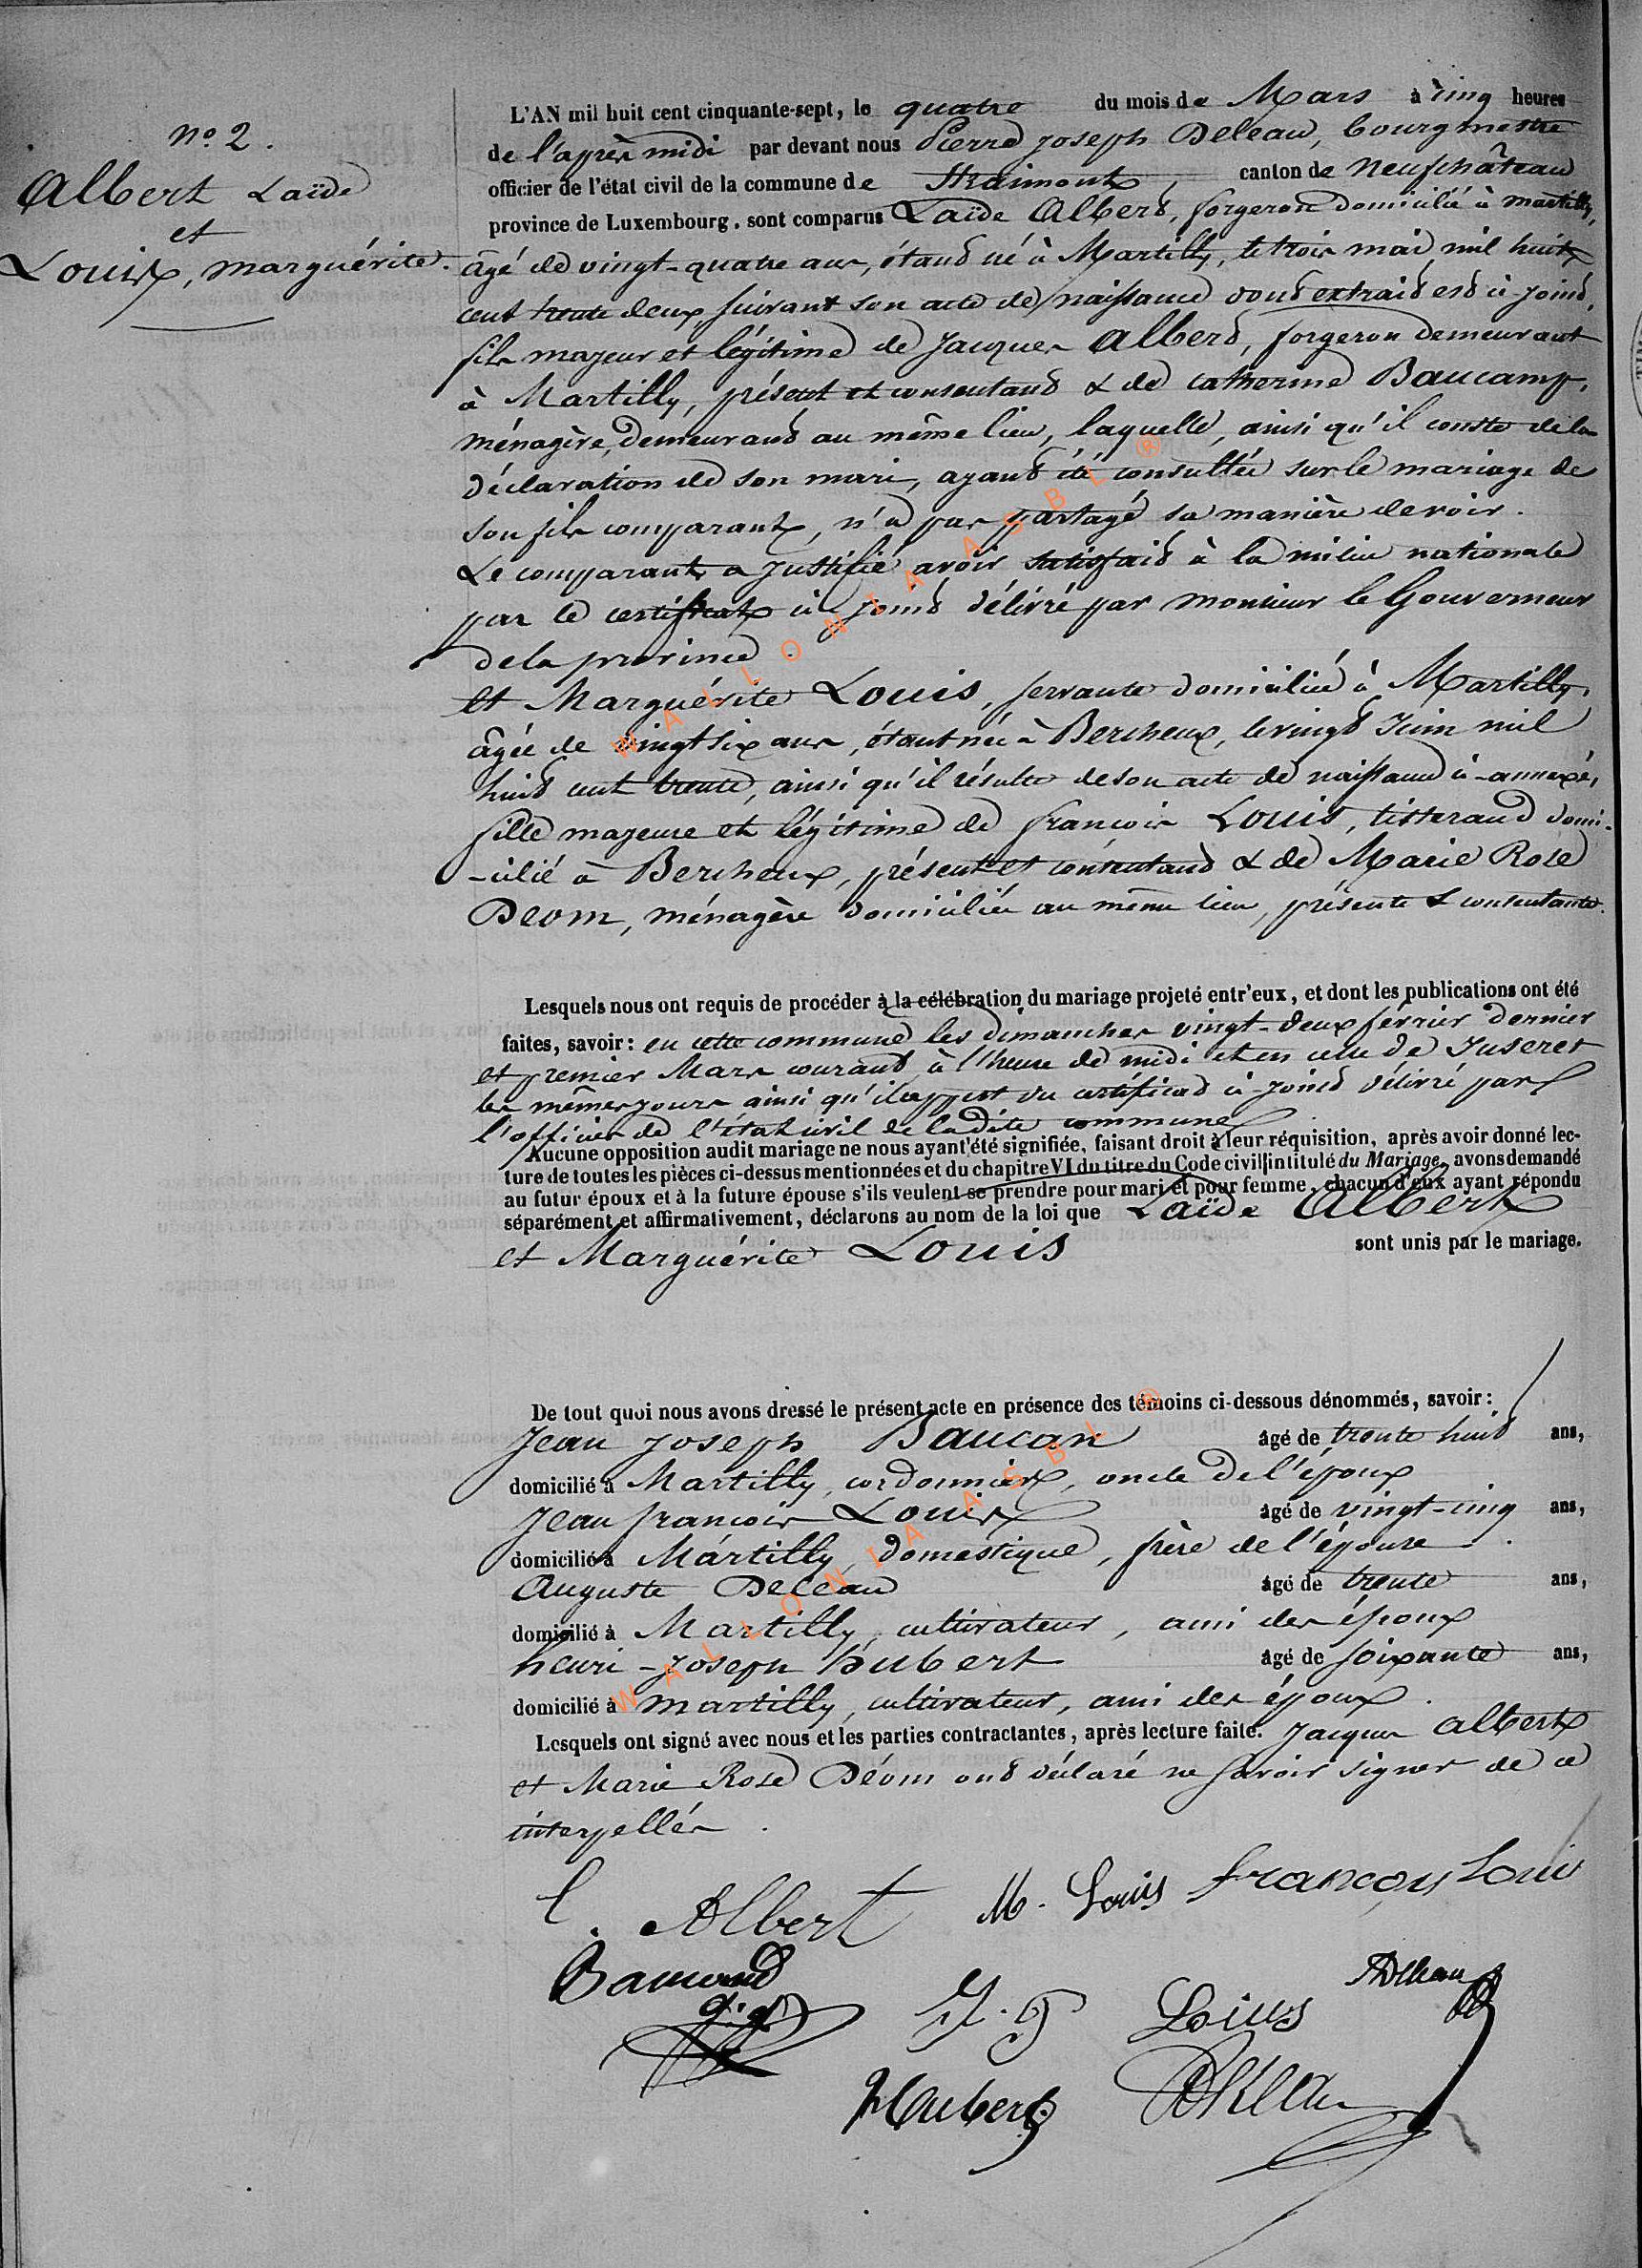 N° 2.
Albert Laïde
et
Louis, Marguérite.
L'AN mil huit cent cinquante-sept, le quatre du mois de Mars à cinq heures
de l'après midi par devant nous Pierre Joseph Deleau, bourgmestre
officier de l'état civil de la commune de Straimont, canton de Neufchâteau
province de Luxembourg, sont comparus Laïde Albert, forgeron domicilié à Martilly,
âgé de vingt-quatre ans, étant né à Martilly, le trois mai mil huit
cent trente deux, suivant son acte de naissance dont extrait est ci-joint,
fils majeur et légitime de Jacques Albert, forgeron demeurant
à Martilly, présent et consentant & de Catherine Baucamp,
ménagère, demeurant au même lieu, laquelle, ainsi qu'il conste de la
déclaration de son mari, ayant été consultée sur le mariage de
son fils comparant, n'a pas partagé sa manière de voir.
Le comparant a justifié avoir satisfait à la milice nationale
par le certificat ci-joint délivré par monsieur le Gouverneur
de la province.
et Marguérite Louis, servante domiciliée à Martilly,
âgée de vingt six ans, étant née à Bercheux, le vingt Juin mil
huit cent trente, ainsi qu'il résulte de son acte de naissance ci-annexé,
fille majeure et légitime de François Louis, tisserand domi-
-cilié à Bercheux, présent et consentant & de Marie Rose
Deom, ménagère domiciliée au même lieu, présente & consentante.
Lesquels nous ont requis de procéder à la célébration du mariage projeté entr'eux, et dont les publications ont été
faites, savoir: en cette commune les dimanches vingt-deux février dernier
et premier Mars courant à l'heure de midi et en celle de Juseret
les mêmes jours ainsi qu'il appert du certificat ci-joint délivré par
l'officier de l'état civil de ladite commune
Aucune opposition audit mariage ne nous ayant été signifiée, faisant droit à leur réquisition, après avoir donné lec-
ture de toutes les pièces ci-dessus mentionnées et du chapitre VI du titre du Code civil intitulé du Mariage, avons demandé
au futur époux et à la future épouse s'ils veulent se prendre pour mari et pour femme, chacun d'eux ayant répondu
séparément et affirmativement, déclarons au nom de la loi que Laïde Albert
et Marguérite Louis sont unis par le mariage.
De tout quoi nous avons dressé le présent acte en présence des témoins ci-dessous dénommés, savoir:
Jean Joseph Baucan âgé de trente huit ans,
domicilié à Martilly, cordonnier, oncle de l'époux
Jean François Louis âgé de vingt-cinq ans,
domicilié à Martilly, domestique, frère de l'épouse.
Auguste Deleau âgé de trente ans,
domicilié à Martilly, cultivateur, ami des époux
henri-Joseph Hubert âgé de soixante ans,
domicilié à Martilly, cultivateur, ami des époux.
Lesquels ont signé avec nous et les parties contractantes, après lecture faite. Jacques Albert
et Marie Rose Déom ont déclaré ne savoir signer de ce
interpellés.
L. Albert M. Louis François Louis
J. F Loius
Hubert
WALLONIA ASBL ®
WALLONIA ASBL ®